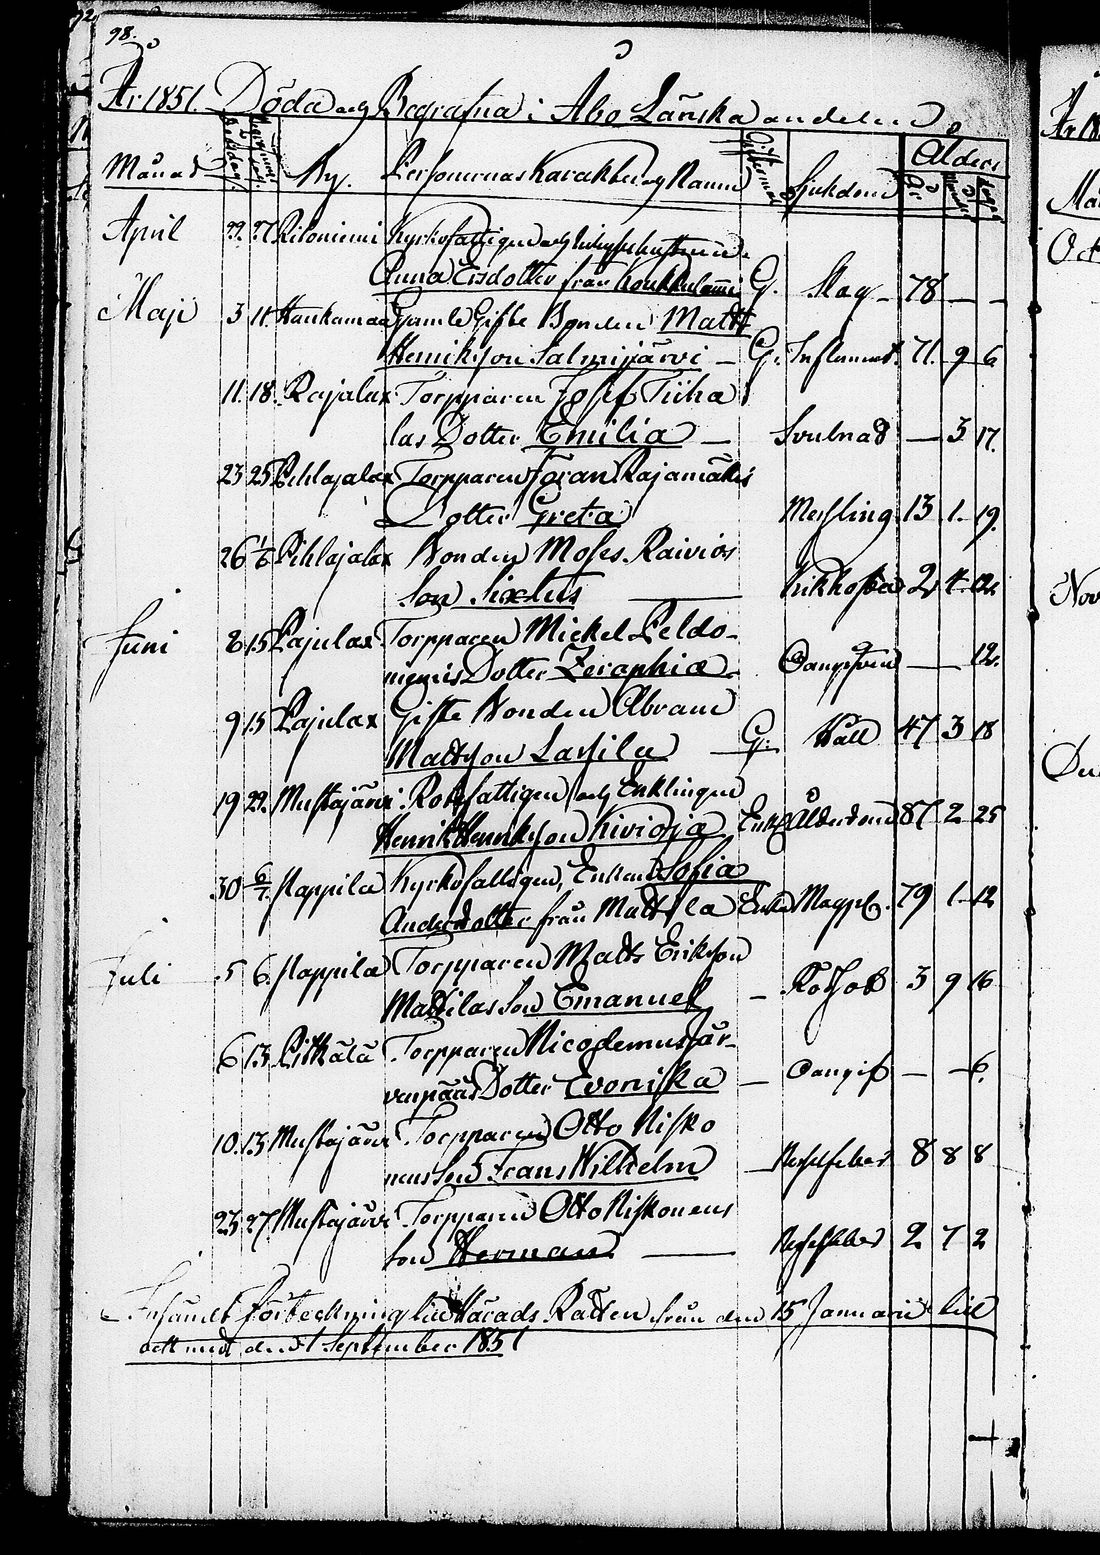 98.
År 1851. Döda och Begrafna i Åbo Länska andelen
Månad By. Personernas Karakter och Namn Sjukdom Ålder
År
April 22. 27 Riloniemi Kyrkofattigen och
Anna Ersdotter från G. Slag - 78 — —
Maji 3 11. Hankamaa Gamle Gifte Bonden Matts
Henriksson Salmijärvi — G. Inflammat. 71. 9 6
11. 18. Rajalax Torpparen Josef Tiiha
las Dotter Emilia — Svulnad — 3 17.
23 25 Pihlajalax Torpparen Jöran Rajamäkis
Dotter Greta Messling 13 1. 19.
26 1/6 Pihlajalax Bonden Moses Raivios
Son Sixtus — Kikhosta 2
Juni 8 15 Pajulax Torpparen Mickel Peldo-
niemis Dotter Zeraphia. — 12.
9 15 Pajulax Gifte Bonden Abram
Mattsson Lassila — G. Håll 47 3 18
19 22. Mustajärvi Rotefattigen och Enklingen
Henrik Henriksson Kivioja Enkl. Ålderdom 87 2 25
30 6/7 Nappila Kyrkofattigen, Enkan Sofia
Andersdotter från Mattila Enka Magpl. 79 1 12
Juli 5 6. Nappila Torpparen Matts Eriksson
Mattilas Son Emanuel — Rötsot 3 9 16
6 13 Pitkälä Torpparen Nicodemus Jär-
venpääs Dotter Evoniska — Oangif — — 6.
10. 13 Mustajärvi Torpparen Otto Nisko
nens Son Frans Wilhelm — Nerffeber 8 8 8
23 27 Mustajärvi Torpparen Otto Niskonens
Son Herman. — Nerffeber 2 7 2
Insändt Förteckning till Härads Rätten från den 15 Januarii till
och med den 1 September 1851